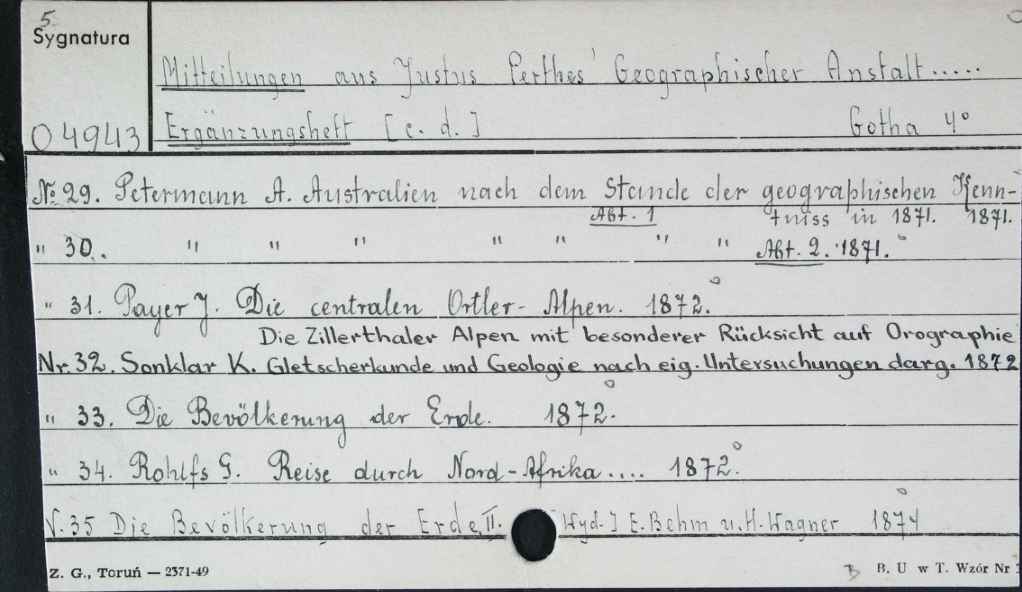 5.
Sygnatura
Mitteilungen aus Justus Perthes' Geographischer Anstalt.....
O 4943
Ergänzungsheft [c. d.] Gotha 4°
№ 29. Petermann A. Australien nach dem Stande der geographischen Kenn-
Abt. 1 tniss in 1871. 1871.
" 30. " " " " " " " Abt. 2. 1871.
" 31. Payer J. Die centralen Ortler-Alpen. 1872.
Die Zillerthaler Alpen mit besonderer Rücksicht auf Orographie
Nr. 32. Sonklar K. Gletscherkunde und Geologie nach eig. Untersuchungen darg. 1872
" 33. Die Bevölkerung der Erde. 1872.
" 34. Rohlfs G. Reise durch Nord-Afrika.... 1872.
N. 35 Die Bevölkerung der Erde, II. [Wyd.] E. Behm u. H. Wagner 1874
Z. G., Toruń — 2371-49
B. U w T. Wzór Nr